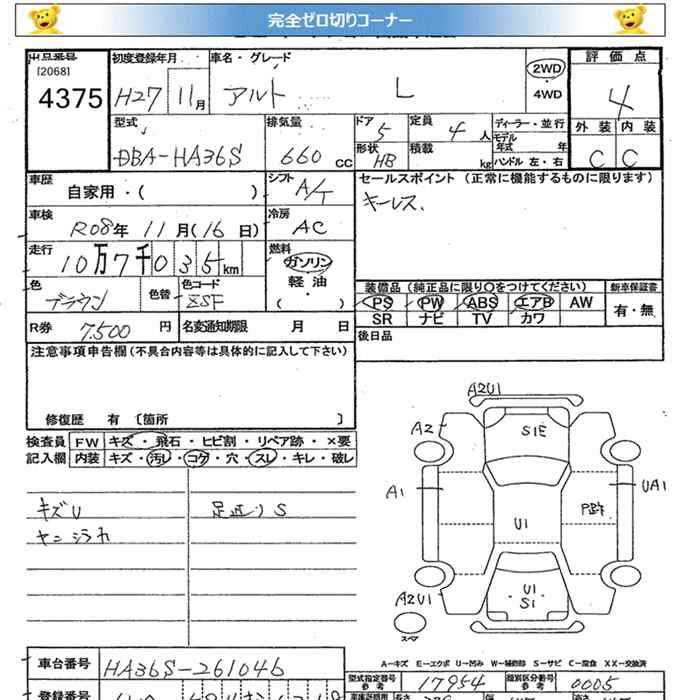 完全ゼロ切りコーナー
出品番号 初度登録年月 車名・グレード 評価点
[2068]
4375 H27 11月 アルト L 2WD 4WD 4
型式 排気量 ドア 定員 ディーラー・並行 外装 内装
DBA-HA36S 660cc 5 4人 モデル年式 年 C C
形状 HB 積載 kg ハンドル 左・右
車歴 自家用・( ) シフト A/T セールスポイント(正常に機能するものに限ります)
車検 R08年11月(16日) 冷房 AC キーレス、
走行 10万7千035km 燃料 ガソリン 軽油 ( )
装備品(純正品に限り○をつけてください) 新車保証書
色 ブラウン 色替 色コード ZSF PS PW ABS エアB AW 有・無
SR ナビ TV カワ
R券 7,500円 名変通知期限 月 日 後日品
注意事項申告欄(不具合内容等は具体的に記入して下さい)
修復歴 有 〔箇所 〕
検査員 FW キズ・飛石・ヒビ割・リペア跡・×要
記入欄 内装 キズ・汚レ・コゲ・穴・スレ・キレ・破レ
キズU 足廻りS
ヤニ シラカ
A2U1
A2 S1E
A1 UA1
U1
U1
S1
A2U1
スペア
A=キズ E=エクボ U=凹み W=補修跡 S=サビ C=腐食 XX=交換済
車台番号 HA36S-261046 型式指定番号 参考 17954 類別区分番号 参考 0005
登録番号